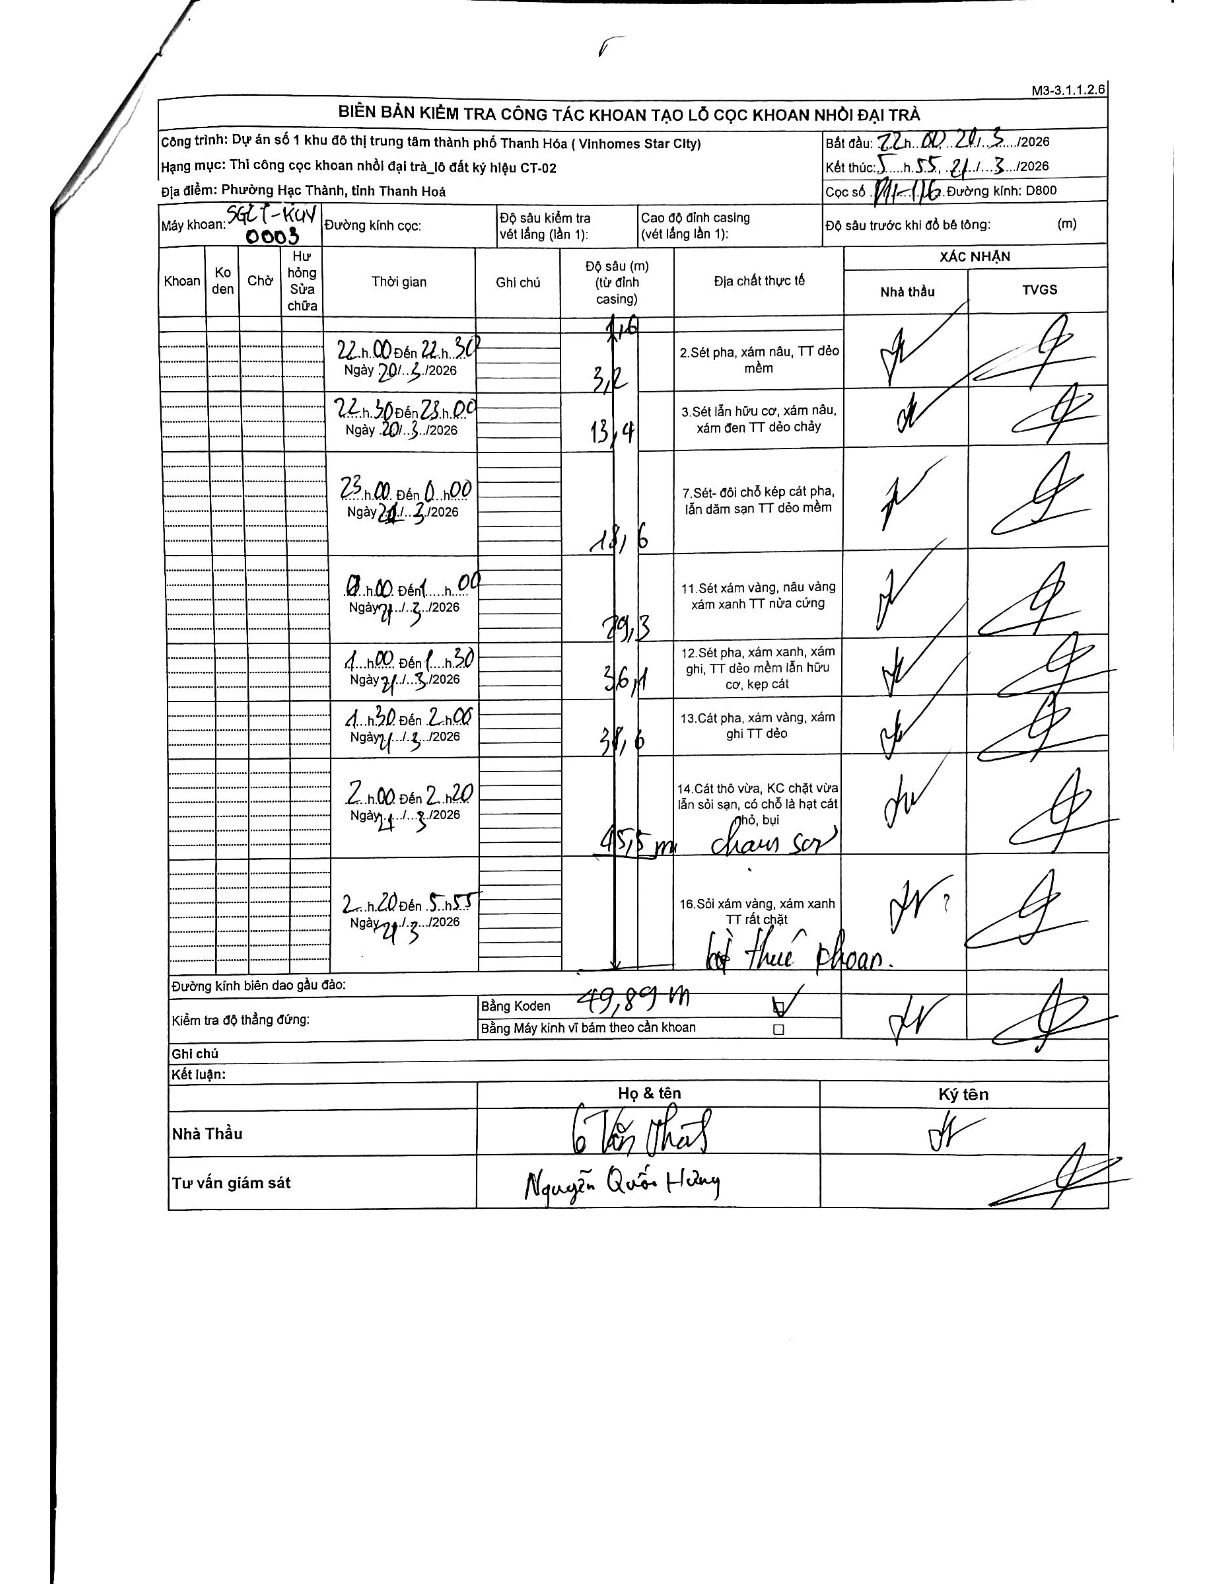 M3-3.1.1.2.6
BIÊN BẢN KIỂM TRA CÔNG TÁC KHOAN TẠO LỖ CỌC KHOAN NHỒI ĐẠI TRÀ
Công trình: Dự án số 1 khu đô thị trung tâm thành phố Thanh Hóa ( Vinhomes Star City)
Bắt đầu: 22h..00, 20/..3..../2026
Hạng mục: Thi công cọc khoan nhồi đại trà_lô đất ký hiệu CT-02
Kết thúc: 5....h.55., .21./...3.../2026
Địa điểm: Phường Hạc Thành, tỉnh Thanh Hoá
Cọc số Đường kính: D800
Máy khoan: 0003
Đường kính cọc:
Độ sâu kiểm tra vét lắng (lần 1):
Cao độ đỉnh casing (vét lắng lần 1):
Độ sâu trước khi đổ bê tông: (m)
Khoan
Ko den
Chờ
Hư hỏng Sửa chữa
Thời gian
Ghi chú
Độ sâu (m) (từ đỉnh casing)
Địa chất thực tế
XÁC NHẬN
Nhà thầu
TVGS
1,6
22.h.00 Đến 22.h..30
Ngày 20/..3./2026
3,2
2.Sét pha, xám nâu, TT dẻo mềm
22.h.30 Đến 23.h.00
Ngày .20/..3../2026
13,4
3.Sét lẫn hữu cơ, xám nâu, xám đen TT dẻo chảy
23.h.00. Đến 0..h00
Ngày 21/...3./2026
18,6
7.Sét- đôi chỗ kép cát pha, lẫn dăm sạn TT dẻo mềm
0.h.00. Đến 1.....h..00
Ngày 21../..3../2026
29,3
11.Sét xám vàng, nâu vàng xám xanh TT nửa cứng
1...h00. Đến 1....h.30
Ngày 21./...3/2026
36,1
12.Sét pha, xám xanh, xám ghi, TT dẻo mềm lẫn hữu cơ, kẹp cát
1...h30. Đến .2.h.00
Ngày 21./...3./2026
38,6
13.Cát pha, xám vàng, xám ghi TT dẻo
2..h.00 Đến 2..h20
Ngày 21../...3./2026
45,5 m
14.Cát thô vừa, KC chặt vừa lẫn sỏi sạn, có chỗ là hạt cát nhỏ, bụi
2...h.20 Đến 5..h55
Ngày 21./..3../2026
16.Sỏi xám vàng, xám xanh TT rất chặt
thuê khoan.
Đường kính biên dao gầu đào:
49,89 m
Kiểm tra độ thẳng đứng:
Bằng Koden ☑
Bằng Máy kinh vĩ bám theo cần khoan ☐
Ghi chú
Kết luận:
Họ & tên
Ký tên
Nhà Thầu
Tư vấn giám sát
Nguyễn Quốc Hưng